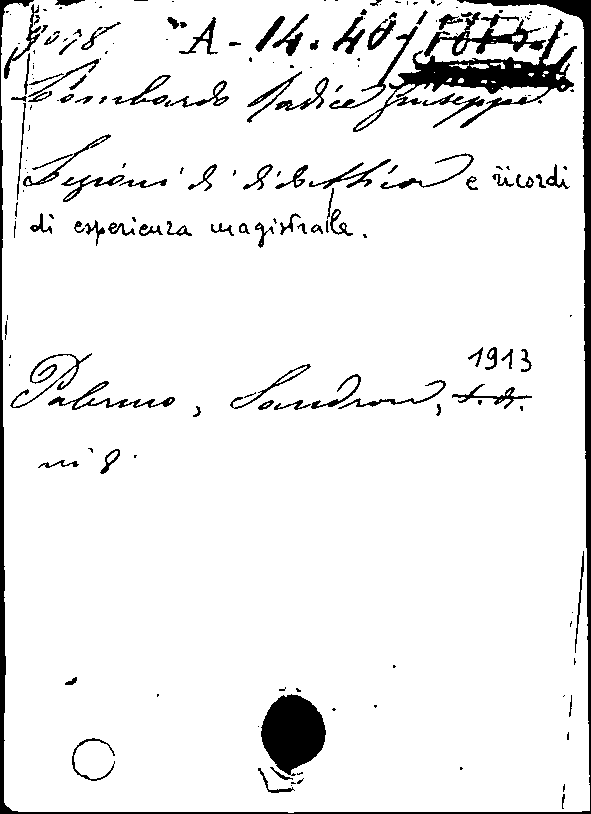 9078 A - 14. 40/7873.1
Lombardo Radice Giuseppe.
Lezioni di didattica e ricordi
di esperienza magistrale.
1913
Palermo, Sandron, s. d.
in 8.